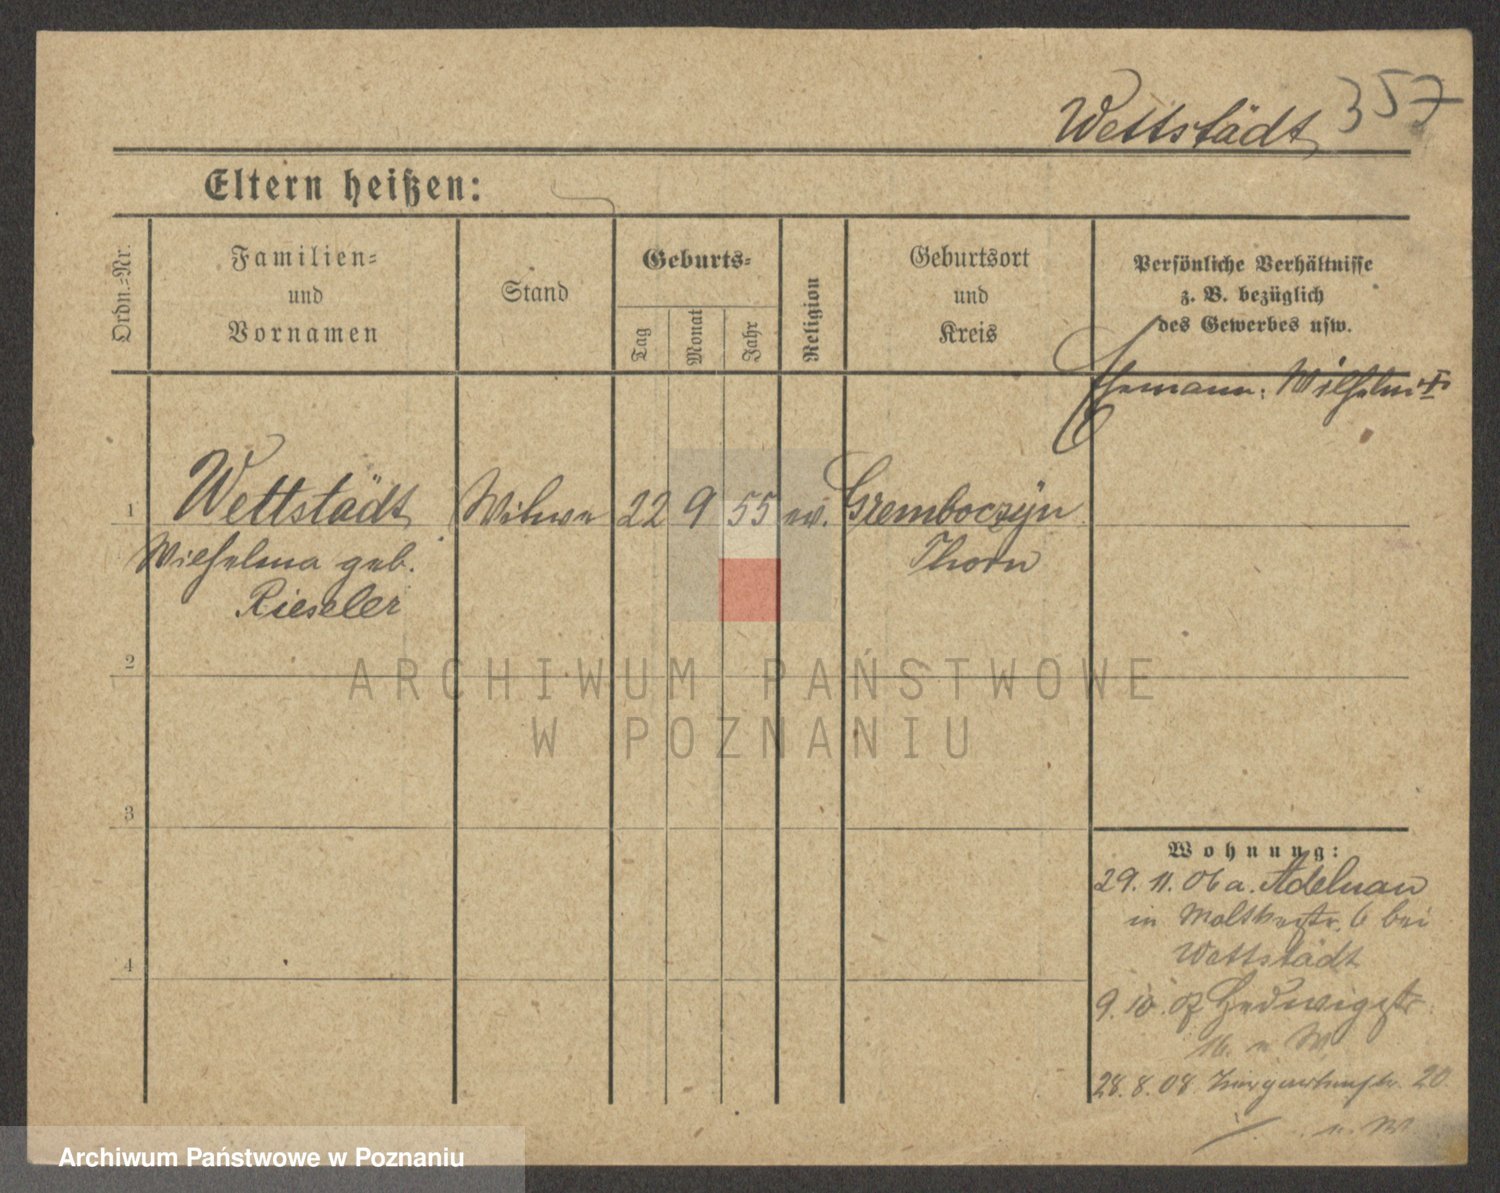 Wettstädt 357
Eltern heißen:
Ordn.-Nr.
Familien-
und
Vornamen
Stand
Geburts-
Tag
Monat
Jahr
Religion
Geburtsort
und
Kreis
Persönliche Verhältnisse
z. B. bezüglich
des Gewerbes usw.
Ehemann: Wilhelm †
1 Wettstädt Witwe 22 9 55 ev. Gremboczyn
Wilhelma geb. Thorn
Rieseler
2
3
4
Wohnung:
29. 11. 06 a. Adelnau
in Moltkestr. 6 bei
Wettstädt
9. 10. 07 Hedwigstr
16. n W.
28. 8. 08. 20
n. W
ARCHIWUM PAŃSTWOWE
W POZNANIU
Archiwum Państwowe w Poznaniu